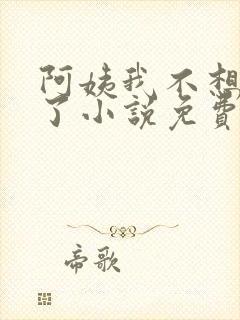 阿姨我不想
了小说免费
帝歌